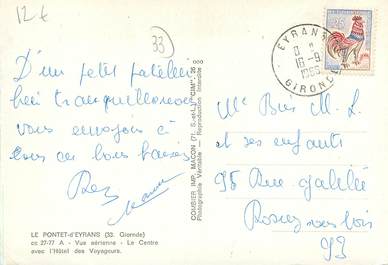 12 €
33
D'un petit patelin
bien tranquille nous
vous envoyons à
tous de bons baisers
LE PONTET-d'EYRANS (33. Gironde)
cc 27-77 A - Vue aérienne - Le Centre
avec l'Hôtel des Voyageurs.
COMBIER IMP. MACON (71. S.-et-L.) "CIM"
Photographie Véritable — Reproduction Interdite
EYRANS
16-9
GIRONDE
Me M. L.
et ses enfants
95 Rue Galilée
Rosny sous bois
93